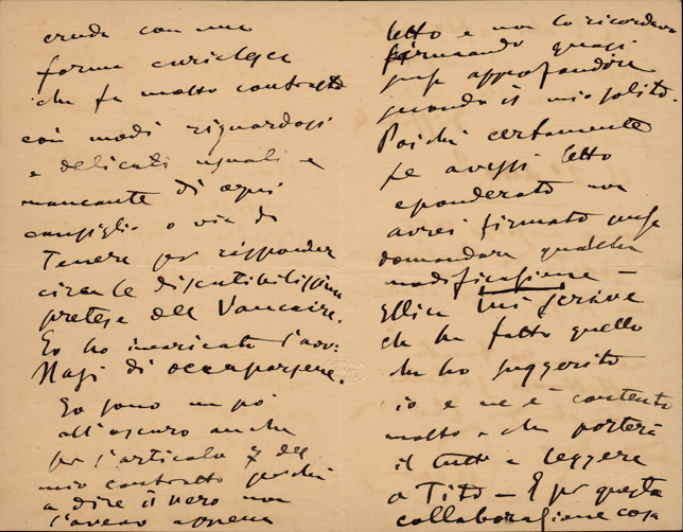 cruda con una
forma
che fa molto contrasto
coi modi riguardosi
e delicati usuali e
mancante di ogni
consiglio o via da
Tenere per rispondere
circa le discutibilissime
pretese del Vaucaire.
Io ho incaricato l'avv:
Nasi di occuparsene.
Io sono un po'
all'oscuro anche
per l'articolo 7 del
mio contratto perchè
a dire il vero non
l'avevo appena
letto e non lo ricordavo
firmando quasi
senza approfondire
secondo il mio solito.
Poichè certamente
se avessi letto
e ponderato non
avrei firmato senza
domandare qualche
modificazione —
Ellica mi scrive
che ha fatto quello
che ho suggerito
io e ne è contento
molto e che porterà
il tutto a leggere
a Tito — E per questa
collaborazione cosa